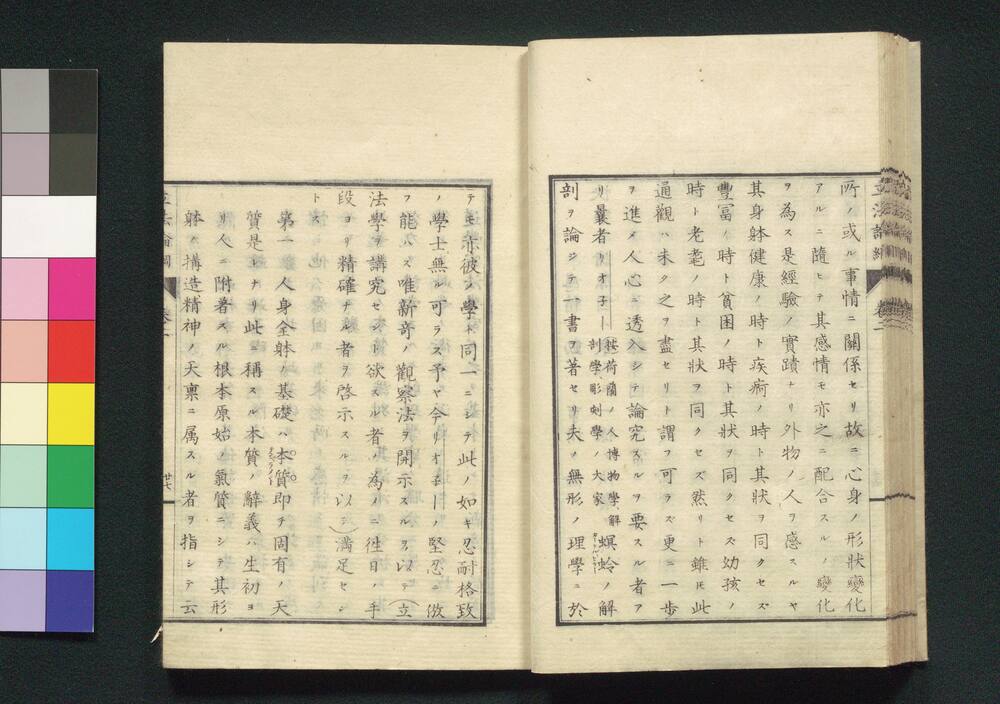 所ノ或ル事情ニ關係セリ故ニ心身ノ形狀變化
アルニ隨ヒテ其感情モ亦之ニ配合スルノ變化
ヲ為ス是經驗ノ實蹟ナリ外物ノ人ヲ感スルヤ
其身躰健康ノ時ト疾病ノ時ト其狀ヲ同クセズ
豐富ノ時ト貧困ノ時ト其狀ヲ同クセス幼孩ノ
時ト老耄ノ時ト其狀ヲ同クセズ然リト雖モ此
通觀ハ未タ之ヲ盡セリト謂フ可ラズ更ニ一歩
ヲ進メ人心ニ透入シテ論究スルヲ要スル者ヲ
リ曩者リオ子ー
按荷蘭ノ人博物學、解
剖學彫刻學ノ大家
螟蛉ノ解
剖ヲ論ジテ一書ヲ著セリ夫ノ無形ノ理學ニ於
立法論綱
卷二
テモ亦彼ノ學ト同一ニシテ此ノ如キ忍耐格致
ノ學士無ル可ラス予ヤ今リオ子ーノ堅忍ニ倣
フ能ハス唯新奇ノ觀察法ヲ開示スルヲ以テ立
法學ヲ講究セント欲スル者ノ為メニ徃日ノ手
段ヨリ精確ナル者ヲ啓示スルヲ以テ滿足セン
トス
第一人身全躰ノ基礎ハ本質即チ固有ノ天
質是レナリ此ニ稱スル本質ノ辭義ハ生初ヨ
リ人ニ附着スル根本原始ノ氣質ニシテ其形
躰ノ搆造精神ノ天稟ニ属スル者ヲ指シテ云
立法論綱
卷二
廿七